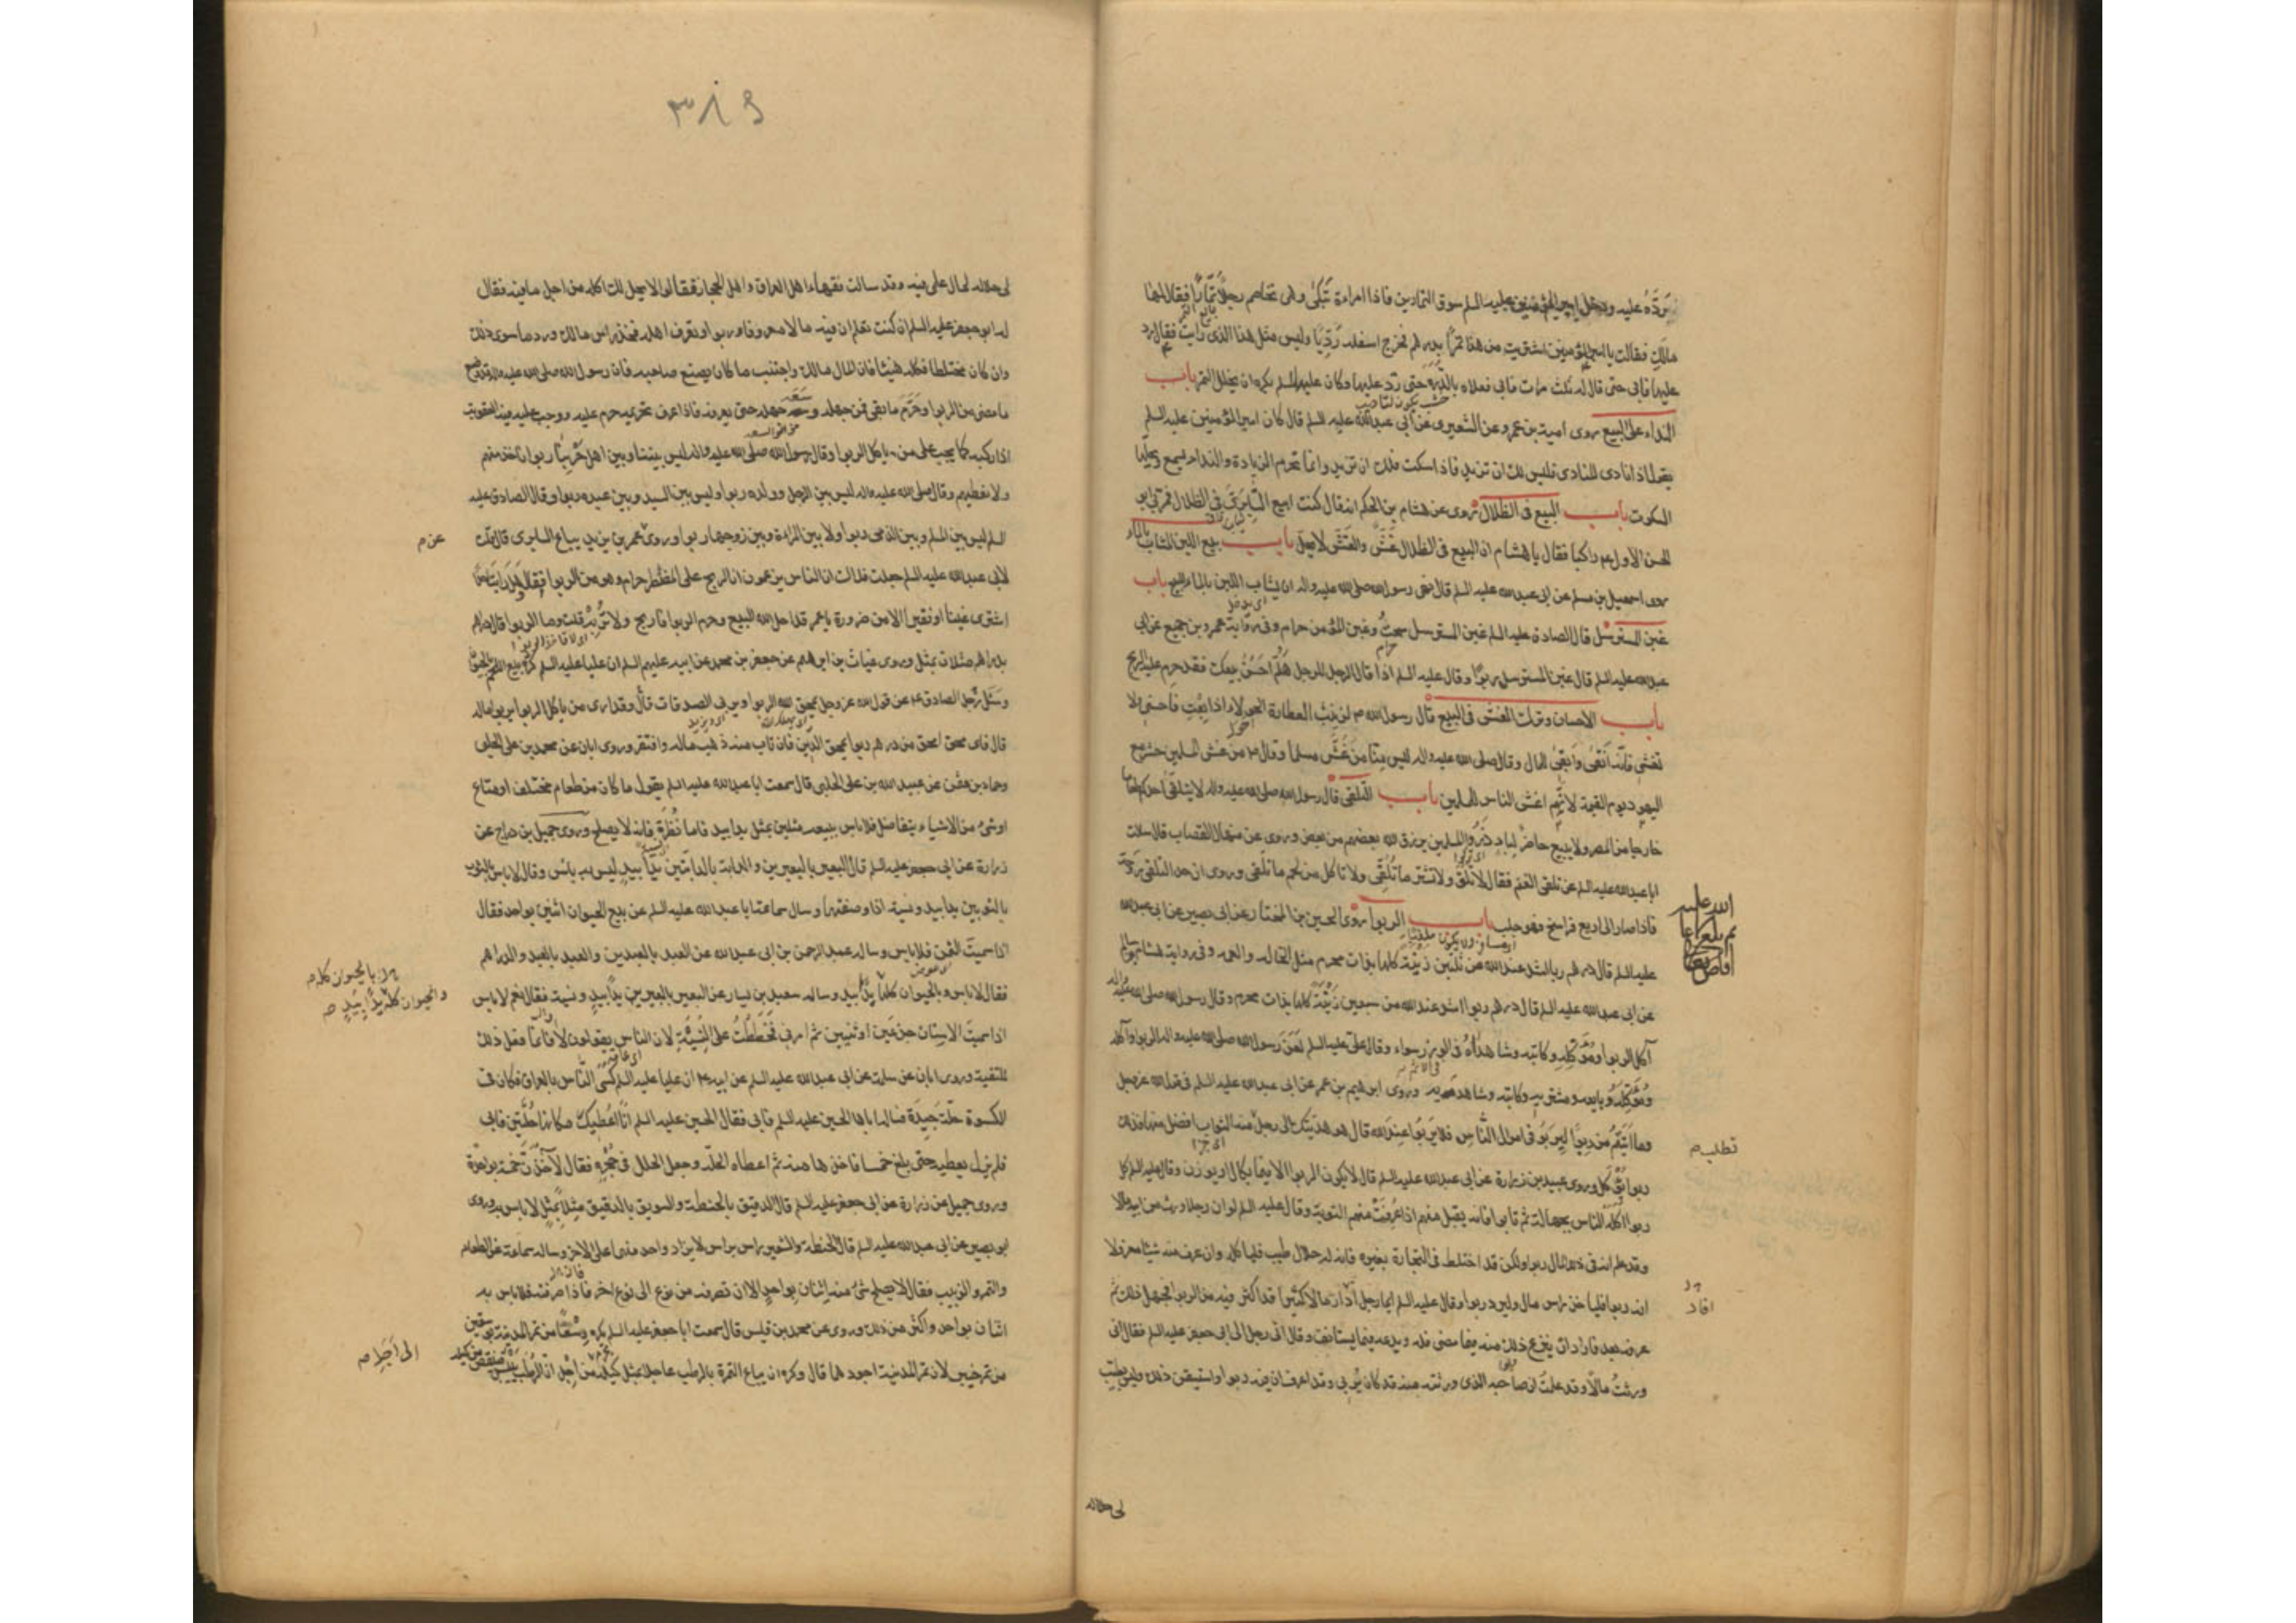 يردّه عليه ودخل امير المؤمنين عليه السلم سوق التمارين فاذا امراءة تَبْكى وهى تخاصم رجلًا تَمّارًا فقال لها
مالكِ فقالت يا امير المؤمنين اشتريت من هذا تمرًا بدرهم فخرج اسفله رَدِيًّا وليس مثل هذا الذى رايتُ فقال رد
عليها فابى حتى قال له ثلث مرات فابى فعلاه بالدِّرَّة حتى ردّ عليها وكان عليه السلم يكره ان يجلل التمر باب
النداء على البيع روى امية بن عمرو عن الشعيرى عن ابى عبدالله عليه السلم قال كان امير المؤمنين عليه السلم
يقول اذا نادى المنادى فليس لك ان تزيد فاذا سكت فلك ان تزيد وانما تحرم الزيادة والنداء يسمع ويحلّها
السكوت باب البيع فى الظلال روى عن هشام بن الحكم انه قال كنت ابيع السّابِرِىّ فى الظلال فمرّ بى ابو
الحسن الاول عم راكبا فقال يا هشام ان البيع فى الظلال غِشّ والغشّ لا يحلّ باب بيع اللبن المشاب بالماء
روى اسمعيل بن مسلم عن ابى عبد الله عليه السلم قال نهى رسول الله صلى الله عليه واله ان يشاب اللبن بالماء للبيع باب
غبن المسترسل قال الصادق عليه السلم غبن المسترسل سحتٌ وغبن المؤمن حرام وفى رواية عمرو بن جميع عن ابى
عبد الله عليه السلم قال غبن المسترسل ربوًا وقال عليه السلم اذا قال الرجل للرجل هَلُمَّ اُحَسِّنُ بيعك فقد حرم عليه الربح
باب الاحسان وترك الغش فى البيع قال رسول الله ص لزينب العطارة الحولاء اذا بِعْتِ فاحسنى ولا
تغشى فانّه اَنقى واَبقى للمال وقال صلى الله عليه واله ليس مِنّا مَن غَشَّ مسلما وقال ص من غش المسلمين حشر مع
اليهود يوم القيمة لانّهم اغش الناس للمسلمين باب التلقى قال رسول الله صلى الله عليه واله لا يتلقى احدكم طعاما
خارجا من المصر ولا يبيع حاضر لبادٍ ذَرُوا المسلمين يرزق الله بعضهم من بعض وروى عن منهال القصاب قال سالت
ابا عبدالله عليه السلم عن تلقى الغنم فقال لا تَلَقَّ ولا تشتر ما تُلُقِّى ولا تاكل من لحم ما تلقى وروى ان حد التلقى رَوْحة
فاذا صار الى اربع فراسخ فهو جلب باب الربوا روى الحسين بن المختار عن ابى بصير عن ابى عبدالله
عليه السلم قال درهم ربا اشد عند الله من ثلثين زَنْيَة كلها بذات محرم مثل الخالة والعمة وفى رواية هشام بن سالم
عن ابى عبد الله عليه السلم قال درهم ربوا اشد عند الله من سبعين زَنْيَةً كلها بذات محرم وقال رسول الله صلى الله عليه واله
آكل الربوا ومُؤكِله وكاتبه وشاهداه فى الوزر سواء وقال علىّ عليه السلم لَعَنَ رسول الله صلى الله عليه واله الربوا وآكله
ومُؤكِله وبايعه ومشتريه وكاتبه وشاهديه وروى ابرهيم بن عمر عن ابى عبدالله عليه السلم فى قول الله عز وجل
وما اٰتيتم من ربًا ليربو فى اموال النّاس فلا يربوا عند الله قال هو هديتك الى رجل تطلب منه الثواب افضل منها فذلك
ربوا يُؤكل وروى عبيد بن زرارة عن ابى عبدالله عليه السلم قال لا يكون الربوا الا فيما يكال او يوزن وقال عليه السلم كل
ربوا اكله الناس بجهالة ثم تابوا فانه يقبل منهم اذا عُرِفَتْ منهم التوبة وقال عليه السلم لو ان رجلا ورث من ابيه مالا
وقد علم ان فى ذلك المال ربوا ولكن قد اختلط فى التجارة بغيره فانه له حلال طيب فلياكله وان عرف منه شيئا معزولا
انه ربوا فلياخذ راس ماله وليرد ربوا وقال عليه السلم ايما رجل اَدارَ مالا كثيرا قد اكثر فيه من الربوا فجهل ذلك ثم
عرفه بعد فاراد ان ينزع ذلك منه فما مضى فله ويدعه فيما يستانف وقال اتى رجل الى ابى جعفر عليه السلم فقال انى
ورثتُ مالًا وقد علمتُ ان صاحبه الذى ورثته منه قد كان يُربى وقد اعرف ان فيه ربوا واستيقن ذلك وليس يطيب
تطلب م
افاد
لى حلاله
٣٨٩
لى حلاله لحال على فيه وقد سالت فقهاء اهل العراق واهل الحجاز فقالوا لا يحل لك اكله من اجل ما فيه فقال
له ابو جعفر عليه السلم ان كنت تعلم ان فيه مالا معروفا وربوا وتعرف اهله فخذ راس مالك ورد ما سوى ذلك
وان كان مختلطا فكله هنيئا فان المال مالك واجتنب ما كان يصنع صاحبه فان رسول الله صلى الله عليه واله قد وضع
ما مضى من الربوا وحَرَّمَ ما بقى فمن جهله وسعه جهله حتى يعرفه فاذا عرف تحريمه حرم عليه ووجب عليه فيه العقوبة
اذا ركبه كما يجب على من ياكل الربوا وقال رسول الله صلى الله عليه واله ليس بيننا وبين اهل حَرْبِنا ربوا ناخذ منهم
ولا نعطيهم وقال صلى الله عليه واله ليس بين الرجل وولده ربوا وليس بين السيد وبين عبده ربوا وقال الصادق عليه
السلم ليس بين المسلم وبين الذمى ربوا ولا بين المراءة وبين زوجها ربوا وروى عمر بن يزيد بياع السابرى قال قلت
لابى عبدالله عليه السلم جعلت فداك ان الناس يزعمون ان الربح على المضطر حرام وهو من الربوا فقال وهل رايت احدًا
اشترى غنيّا او فقيرا الا من ضرورة يا عمر قد احل الله البيع وحرم الربوا فاربح ولا تُربِهْ قلت وما الربوا قال دراهم
بدراهم مثلان بمثل وروى غياث بن ابرهيم عن جعفر بن محمد عن ابيه عليهم السلم ان عليا عليه السلم كره بيع اللحم بالحيوان
وسئل رجل الصادق ع عن قول الله عز وجل يمحق الله الربوا ويربى الصدقات قال وقد ارى من ياكل الربوا يربو ماله
قال فاى محق امحق من درهم ربوا يمحق الدِّين فان تاب منه ذهب ماله وافتقر وروى ابان عن محمد بن على الحلبى
وحماد بن عثمن عن عبيد الله بن على الحلبى قال سمعت ابا عبد الله عليه السلم يقول ما كان من طعام مختلف او متاع
او شىء من الاشياء يتفاضل فلاباس ببيعه مثلين بمثل يدا بيد فاما نَظِرَةً فانه لا يصلح وروى جميل بن دراج عن
زرارة عن ابى جعفر عليه السلم قال البعير بالبعيرين والدابة بالدابتين يدًا بيدٍ ليس به باس وقال لا باس بالثوب
بالثوبين يدا بيد ونسية اذا وصفتهما وسال سماعة ابا عبد الله عليه السلم عن بيع الحيوان اثنين بواحد فقال
اذا سميت الثمن فلا باس وساله عبد الرحمن بن ابى عبدالله عن العبد بالعبدين والعبد بالعبد والدراهم
فقال لا باس بالحيوان كلها يدًا بيد وساله سعيد بن يسار عن البعير بالبعيرين يدًا بيدٍ ونسية فقال نعم لا باس
اذا سميت الاسنان جذعين او ثنيين ثم امرنى فخططتُ على النسيّة لان الناس يقولون لا فانما فعل ذلك
للتقية وروى ابان عن سلمة عن ابى عبدالله عليه السلم عن ابيه ع ان عليا عليه السلم كسى النّاس بالعراق فكان فى
الكسوة حلّة جيّدة فساله اياها الحسين عليه السلم فابى فقال الحسين عليه السلم انا اُعطيك مكانها حُلّتين فابى
فلم يزل يعطيه حتى بلغ خمسا فاخذها منه ثم اعطاه الحلّة وجعل الحلل فى حجره فقال لاخذن خمسة بواحدة
وروى جميل عن زرارة عن ابى جعفر عليه السلم قال الدقيق بالحنطة والسويق بالدقيق مثلًا بمثل لا باس به وروى
ابو بصير عن ابى عبدالله عليه السلم قال الحنطة والشعير راس براس لا يزاد واحد منهما على الاخر وساله سماعة عن الطعام
والتمر والزبيب فقال لا يصلح شىء منه اثنان بواحدٍ الا ان تصرفه من نوع الى نوع اخر فاذا صرفته فلا باس به
اثنان بواحد واكثر من ذلك وروى عن محمد بن قيس قال سمعت ابا جعفر عليه السلم يكره وسقًا من تمر المدينة بوسقين
من تمر خيبر لان تمر المدينة اجودهما قال وكره ان يباع التمرة بالرطب عاجلا بمثل كيله من اجل ان الرطب ييبس فينقص من كيله
عن م
بالحيوان كله م
والحيوان كله يدًا بِيَدٍ ص
الى اَجَلٍ ص